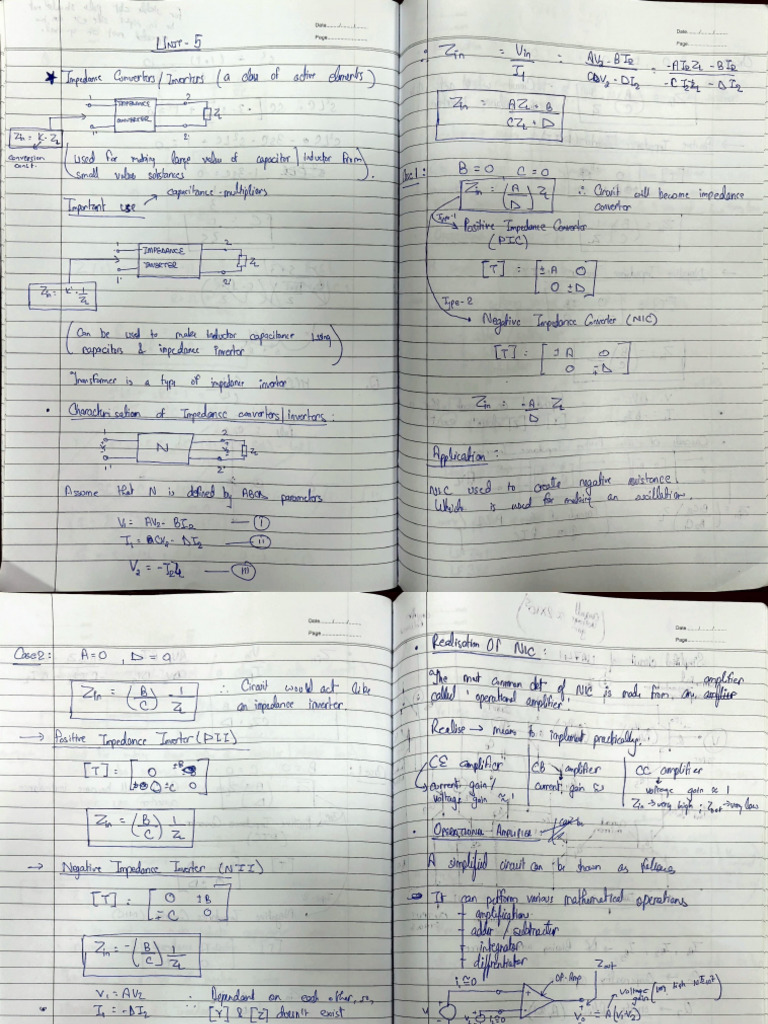 Date
Page
UNIT - 5
★ Impedance Converters / Inverters (a class of active elements)
1 IMPEDANCE CONVERTER 2 ZL
1' 2'
Zin = K · ZL
conversion const.
(used for making large value of capacitor / inductor from
small value substances).
Important use → capacitance - multipliers
1 IMPEDANCE INVERTER 2 ZL
1' 2'
Zin = K · 1/ZL
(Can be used to make inductor capacitance using
capacitors & impedance invertor)
Transformer is a type of impedance invertor
• Characterisation of Impedance convertors / invertors :
1 N 2 ZL
1' 2'
Assume that N is defined by ABCD parameters
V1 = AV2 - BI2 — (i)
I1 = CV2 - DI2 — (ii)
V2 = -I2ZL — (iii)
Date
Page
∴ Zin = Vin/I1 = AV2 - BI2 / CV2 - DI2 = -AI2ZL - BI2 / -CI2ZL - DI2
Zin = AZL + B / CZL + D
Case 1: B = 0 C = 0
Zin = (A/D) ZL ∴ Circuit will become impedance
convertor
Type-1 → Positive Impedance Convertor
(PIC)
[T] = [± A 0
0 ± D]
Type-2
• Negative Impedance Converter (NIC)
[T] = [± A 0
0 ∓ D]
Zin = -A/D ZL
Application :
NIC used to create negative resistance
Which is used for making an oscillation.
Date
Page
Case 2: A = 0 , D = 0
Zin = (B/C) · 1/ZL ∴ Circuit would act like
an impedance inverter.
→ Positive Impedance Invertor (PII)
[T] = [0 ±B
±C 0]
Zin = (B/C) 1/ZL
→ Negative Impedance Inverter (NII)
[T] = [0 ±B
∓C 0]
Zin = -(B/C) 1/ZL
V1 = AV2 ∴ Dependand on each other, so,
• I1 = -DI2 ∵ [Y] & [Z] doesn't exist
Date
Page
• Realisation Of NIC :
The most common of NIC is made from any amplifier
called 'operational amplifier'.
Realise → means to implement practically.
CE amplifier CB amplifier CC amplifier
current gain / current gain voltage gain ≈ 1
voltage gain Zin → very high ; Zout → very low
• OPERATIONAL AMPLIFIER
A simplified circuit can be shown as follows
It can perform various mathematical operations
- amplifications
- adder / subtractor
- integrator
- differntiator
OP-Amp Zout
voltage gain
Vo = A(V1-V2)